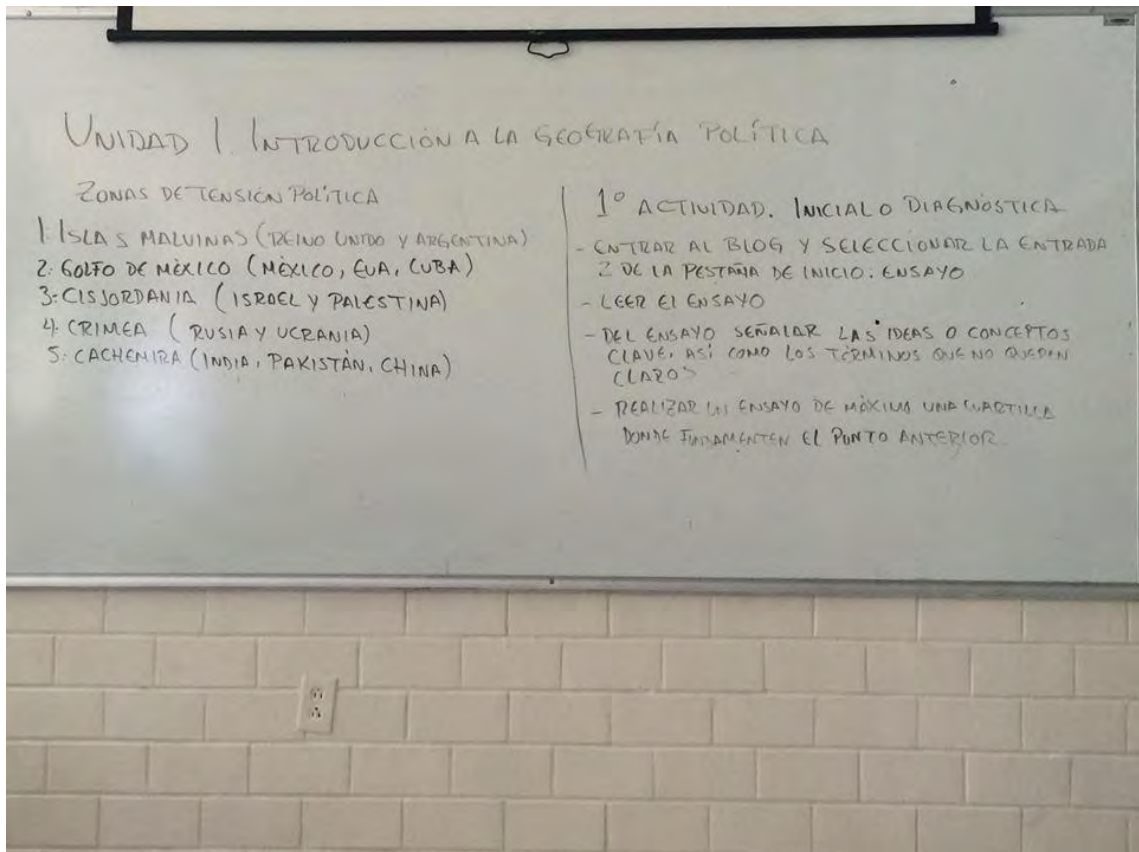 UNIDAD 1. INTRODUCCIÓN A LA GEOGRAFÍA POLÍTICA
ZONAS DE TENSIÓN POLÍTICA
1. ISLAS MALVINAS (REINO UNIDO Y ARGENTINA)
2. GOLFO DE MÉXICO (MÉXICO, EUA, CUBA)
3. CISJORDANIA (ISRAEL Y PALESTINA)
4. CRIMEA (RUSIA Y UCRANIA)
5. CACHEMIRA (INDIA, PAKISTÁN, CHINA)
1° ACTIVIDAD. INICIAL O DIAGNÓSTICA
- ENTRAR AL BLOG Y SELECCIONAR LA ENTRADA
2 DE LA PESTAÑA DE INICIO: ENSAYO
- LEER El ENSAYO
- DEL ENSAYO SEÑALAR LAS IDEAS O CONCEPTOS
CLAVE, ASÍ COMO LOS TÉRMINOS QUE NO QUEDEN
CLAROS
- REALIZAR UN ENSAYO DE MÁXIMO UNA CUARTILLA
DONDE FUNDAMENTEN El PUNTO ANTERIOR.